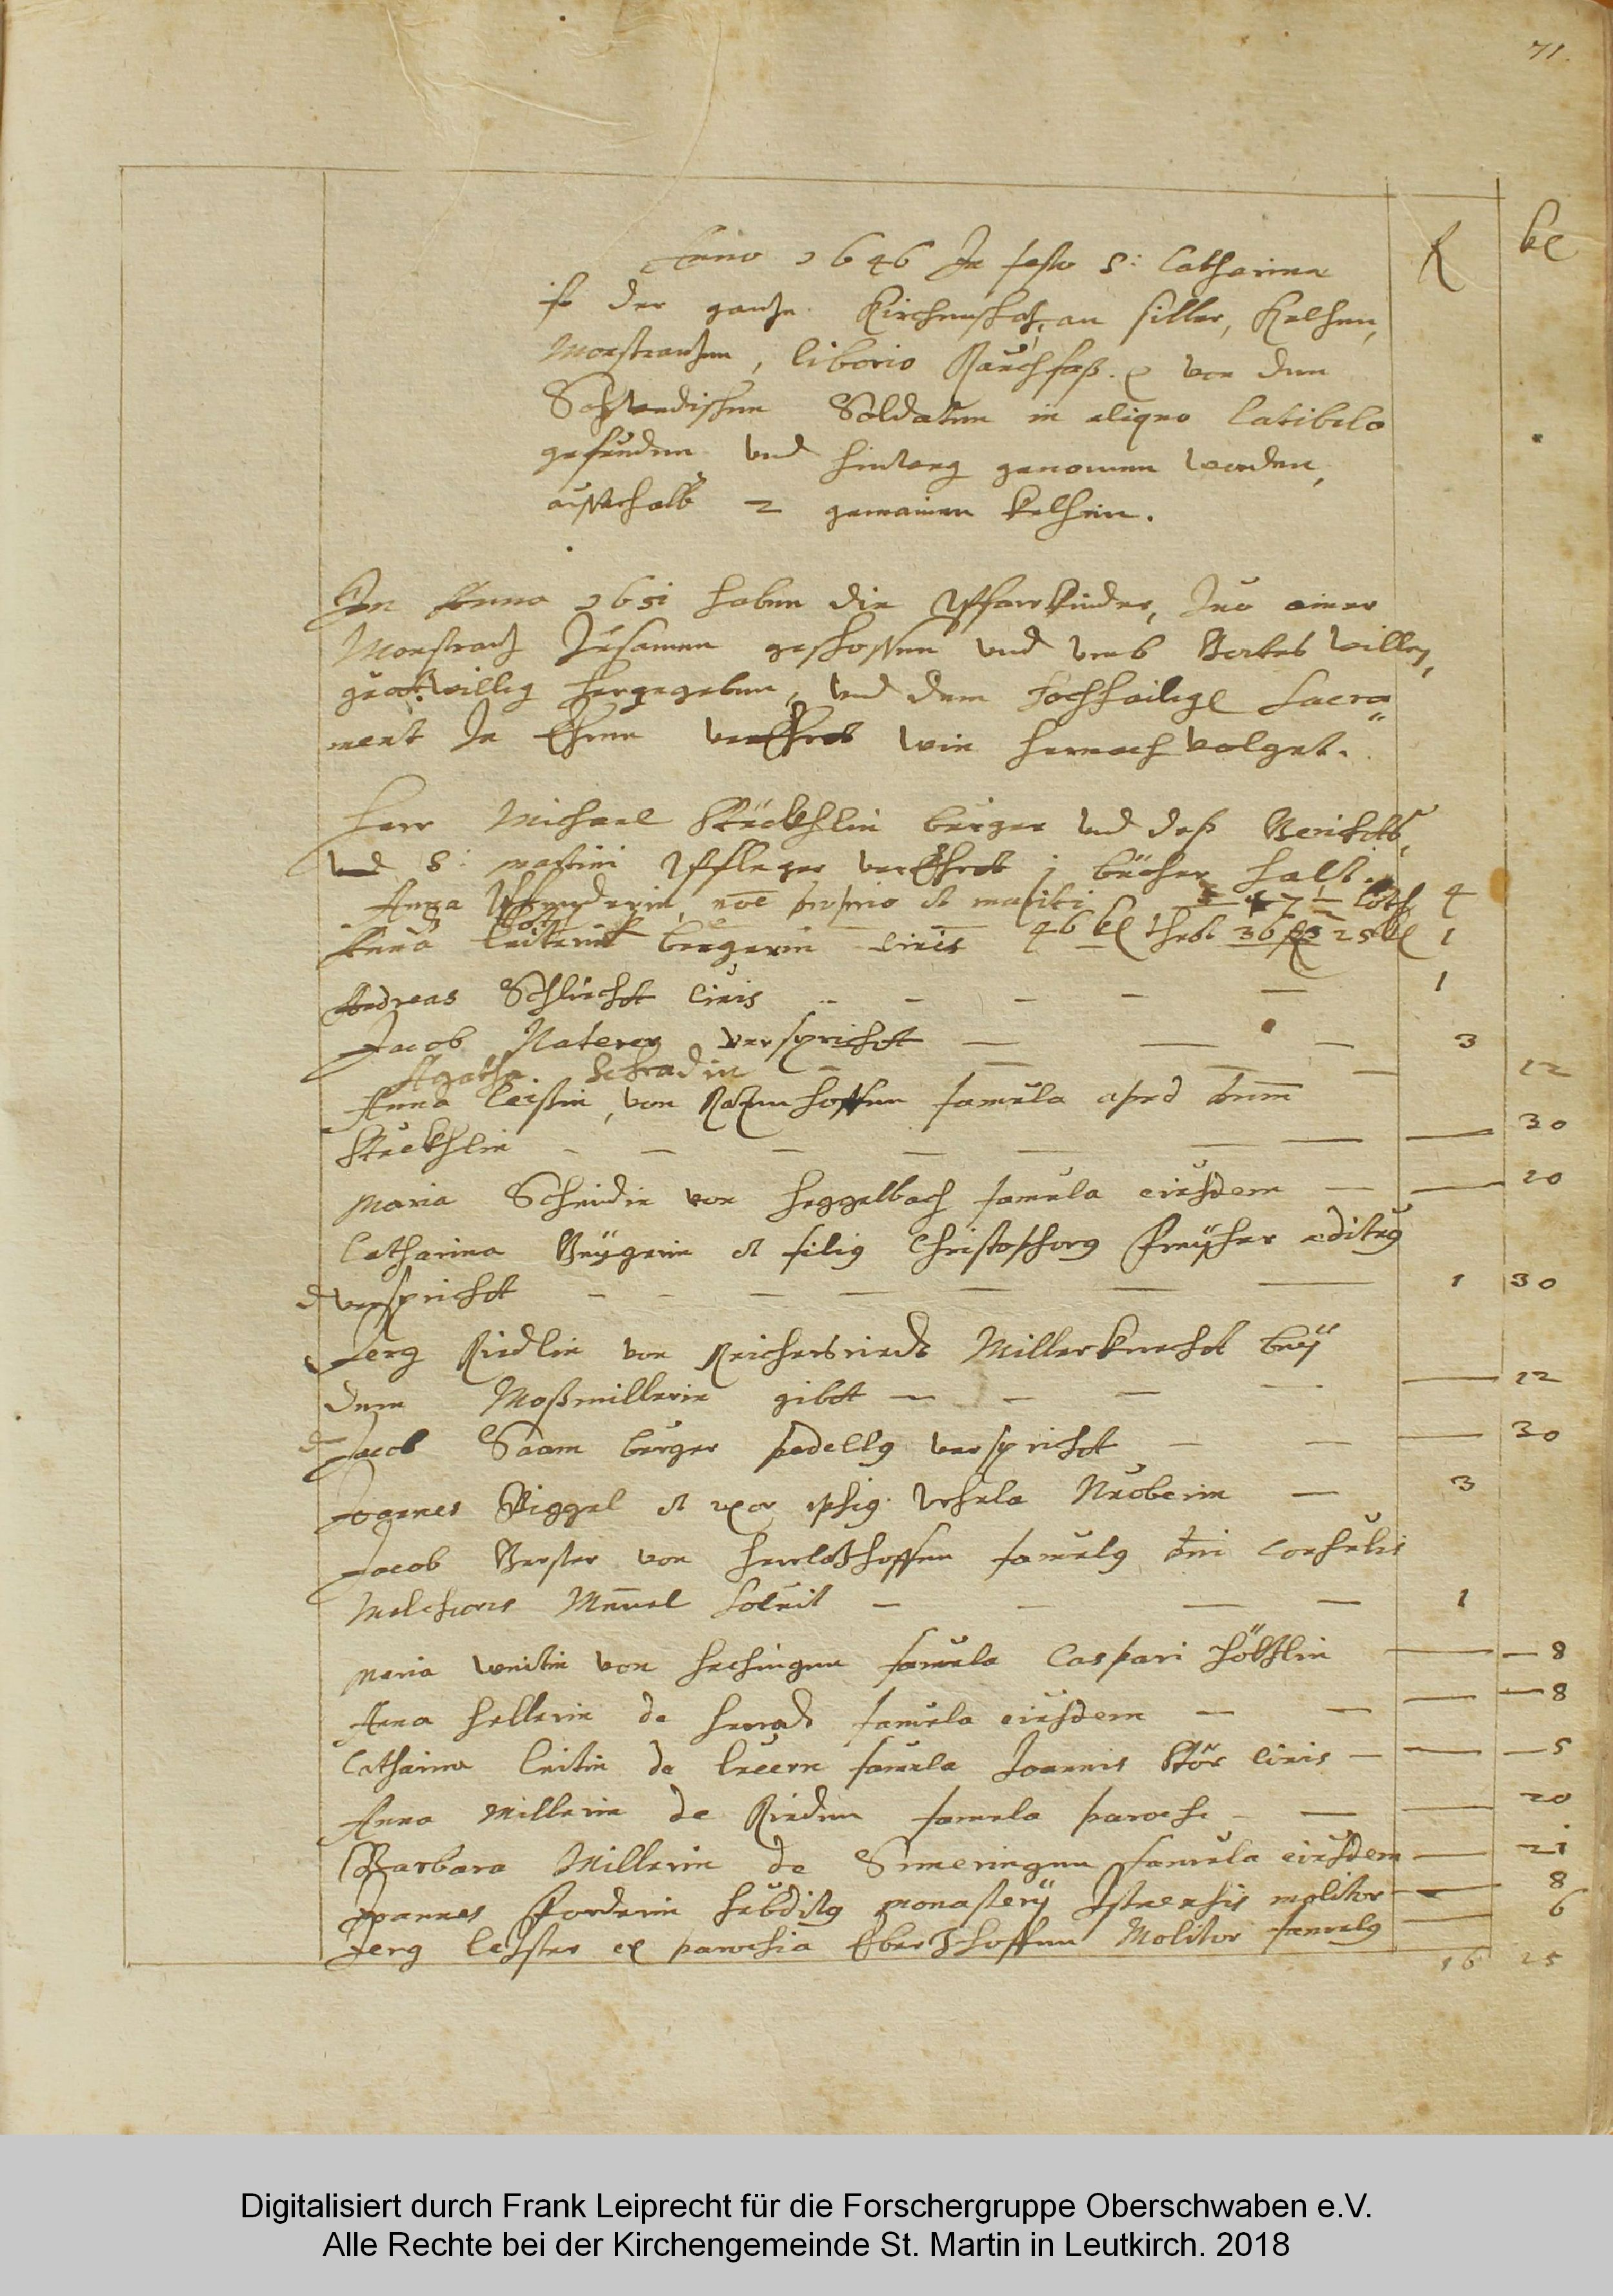 71.
fl kr
Anno 1646 In festo S: Catharina
ist der gantze Kirchenschatz, an silber, Kelchen,
Monstrantzen, liborio Rauchfaß. von den
Schwedischen Soldaten in aliquo latibulo
gefunden und hinweg genomen worden,
ausserhalb 2 gemainen Kelchen.
In Anno 1651 haben die Pfarrkinder, Zuo einer
Monstrantz Zusamen geschossen und umb Gottes willen,
guotwillig hergegeben, und dem Hochheilige Sacra
ment In Ehren verEhret wie hernach volget.
Herr Michael Stückhlin burger und deß Gerichtts,
und S: Martini Pfleger verEhrt 1 bücher halb
Anna noe proprio et mariti loth 4
Anna burgerin civis 46 kr thut 36 fl 25 kr 1
Andreas Schlücht civis - - - - - 1
Jacob Naterer verspricht - - - 3
Agatha Schradin - - - 12
Anna leistin, von Ratzenhoffen famula apud dnm
Stückhlin - - - - - - - 30
Maria Scheidin von Heggelbach famula eiusdem - - 20
Catharina Geygerin et filius Christophorus Preyher edituus
verspricht - - - - - - - 1 30
Jerg Riedlin von Reichertsriedt Millerknecht bey
dem Moßmillerin gibt - - - - - 12
Jacob Saam burger pedellus verspricht - - - 30
Joannes Biggel et uxor ipsius Ursula Nuoberin - 3
Jacob Gerster von Herletzhoffen famulus dni consulis
Melchioris Mennel soluit - - - - 1
Maria weitin von Hechingen famula Caspari Höltzlin - - 8
Anna Hellerin de famula eiusdem - - - - 8
Catharina leitin de lucern famula Joannis Stör civis - - - 5
Anna Millerin de Rieden famula parochi - - - 20
Barbara Millerin de Simeringen famula eiusdem - 21
Joannes subditus monasterij Isnensis molitor - 8
Jerg ex parochia Ebertzhoffen Molitor famulus - 6
16 25
Digitalisiert durch Frank Leiprecht für die Forschergruppe Oberschwaben e.V.
Alle Rechte bei der Kirchengemeinde St. Martin in Leutkirch. 2018